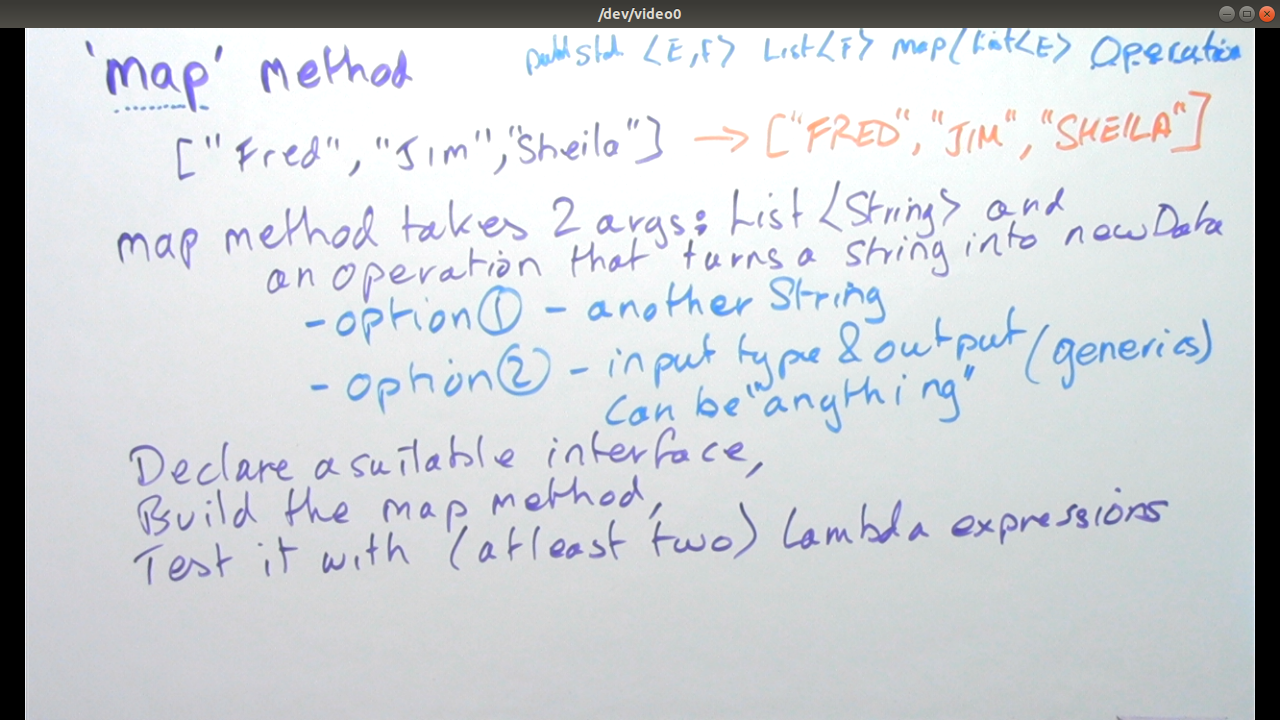 /dev/video0
'map' method
<E,F> List<F> map(List<E> Operation
["Fred", "Jim", "Sheila"] → ["FRED", "JIM", "SHEILA"]
map method takes 2 args: List <String> and
an operation that turns a string into newData
- option ① - another String
- option ② - input type & output (generics)
can be "anything"
Declare a suitable interface,
Build the map method,
Test it with (at least two) lambda expressions